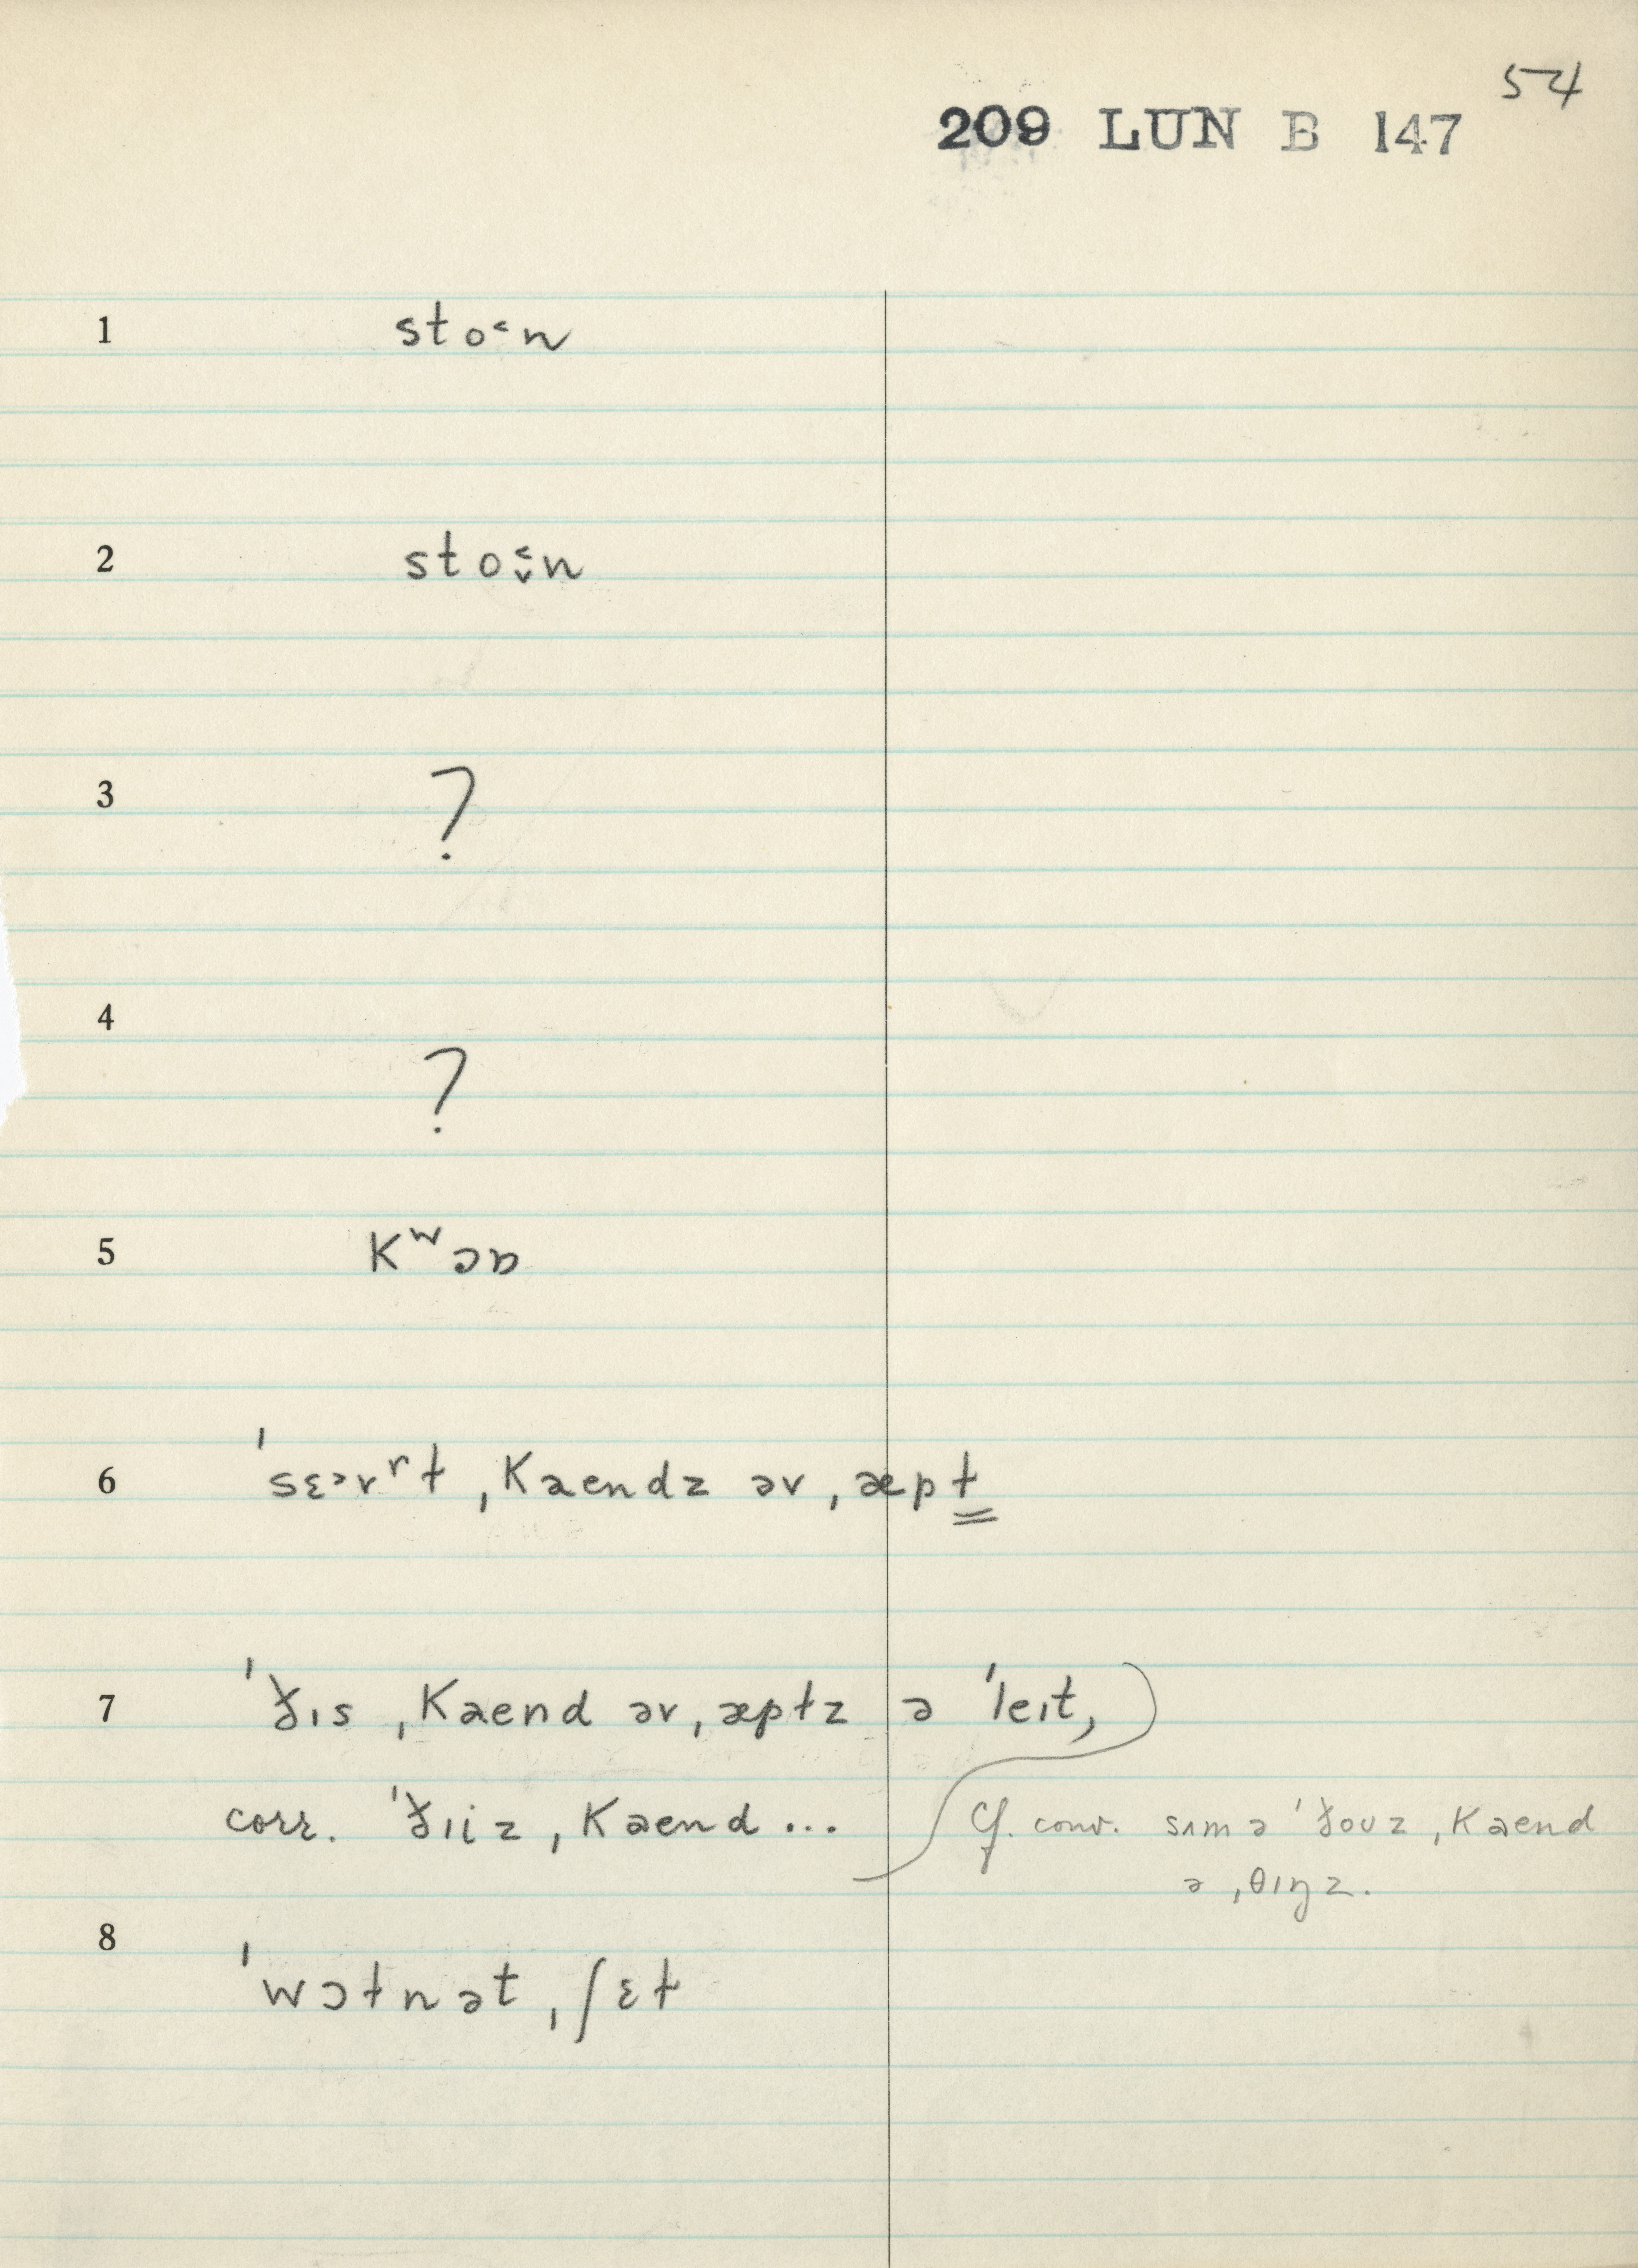 54
209 LUN B 147
1 sto˂n
2 sto˂̬n
3 ?
4 ?
5 Kʷɔɒ
6 ˈsɛɚvʳt ˌKaendz əv ˌæpɫ
7 ˈðɪs ˌKaend əv ˌæpɫz ə ˈleɪt,
corr. ˈðɪiz ˌKaend ...
Cf. conv. sʌm ə ˈðoʊz ˌKaend
ə ˌθɪŋz.
8 ˈwɔɫnət ˌʃɛɫ